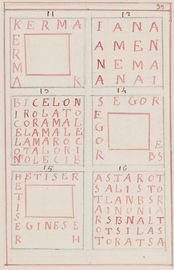 11
KERMA
E
R
M
A K
12
IANA
AMEN
NEMA
ANAI
13
BICELON
IROLATO
CORAMAL
ELAMALE
LAMAROC
OTALORI
NOLECIB
14
SEGOR
E
G
O B
R ES
15
HETISER
E
T
I
S
E GINESE
R H
16
ASTAROT
SALISTO
TLANBSR
AINONIA
RSBNALT
OTSILAS
TORATSA